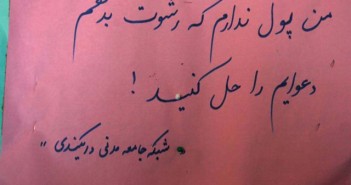 من پول ندارم که رشوت بدهم
دعوایم را حل کنید !
شبکه جامعه مدنی دریکیندی "